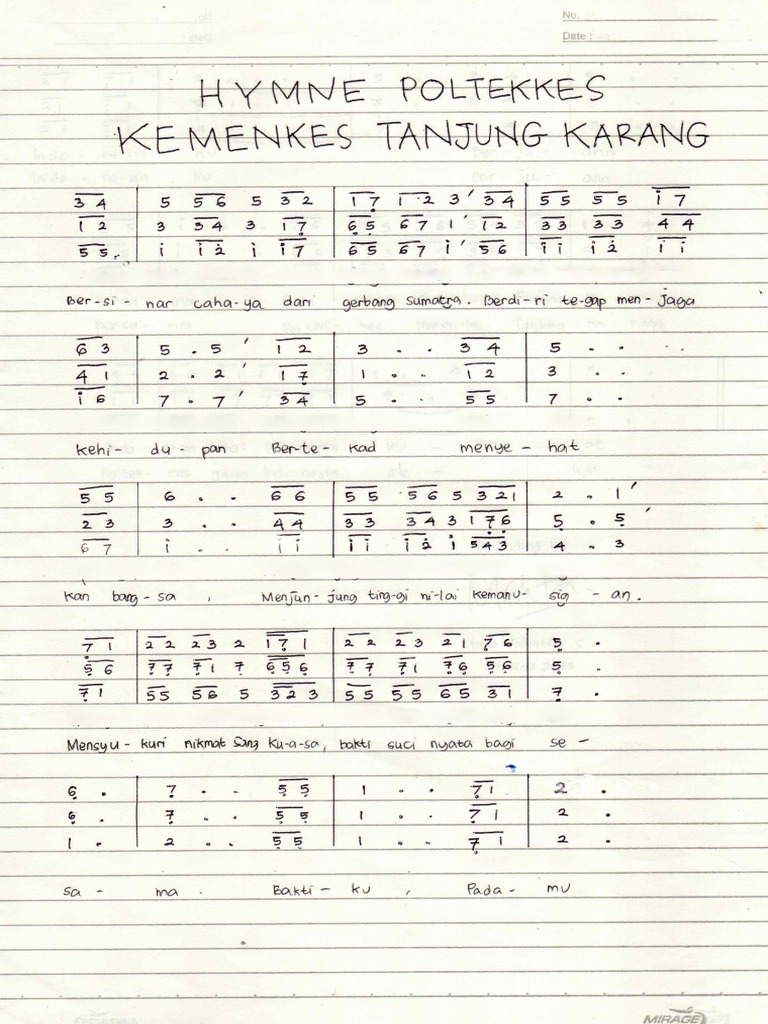 No.
Date :
HYMNE POLTEKKES
KEMENKES TANJUNG KARANG
3 4 | 5 5 6 5 3 2 | 1 7̣ 1 2 3 ' 3 4 | 5 5 5 5 i 7
1 2 | 3 3 4 3 1 7̣ | 6̣ 5̣ 6 7 1 ' 1 2 | 3 3 3 3 4 4
5 5 | i i 2̇ i i 7 | 6 5 6 7 i ' 5 6 | i i i 2̇ i i
Ber-si - nar caha-ya dari gerbang sumatra. Berdi-ri te-gap men-jaga
6 3 | 5 . 5 ' 1 2 | 3 . . 3 4 | 5 . .
4 1 | 2 . 2 ' 1 7̣ | 1 . . 1 2 | 3 . .
i 6 | 7 . 7 ' 3 4 | 5 . . 5 5 | 7 . .
kehi- du - pan Ber-te - kad menye - hat
5 5 | 6 . . 6 6 | 5 5 5 6 5 3 2 1 | 2 . 1 '
2 3 | 3 . . 4 4 | 3 3 3 4 3 1 7̣ 6̣ | 5̣ . 5̣ '
6 7 | i . . i i | i i i 2̇ i 5 4 3 | 4 . 3
kan bang-sa , Menjun-jung ting-gi ni-lai kemanu- sia - an.
7̣ 1 | 2 2 2 3 2 1 7̣ 1 | 2 2 2 3 2 1 7̣ 6̣ | 5̣ .
5̣ 6 | 7̣ 7̣ 7̣ 1 7̣ 6̣ 5̣ 6̣ | 7̣ 7̣ 7̣ 1 7̣ 6̣ 5̣ 6̣ | 5̣ .
7̣ 1 | 5 5 5 6 5 3 2 3 | 5 5 5 5 6 5 3 1 | 7̣ .
Mensyu - kuri nikmat Sang Ku-a-sa, bakti suci nyata bagi se -
6̣ . | 7̣ . . 5̣ 5̣ | 1 . . 7̣ 1 | 2 .
6̣ . | 7̣ . . 5̣ 5̣ | 1 . . 7̣ 1 | 2 .
1 . | 2 . . 5̣ 5̣ | 1 . . 7̣ 1 | 2 .
sa - ma . Bakti - ku , Pada - mu
MIRAGE